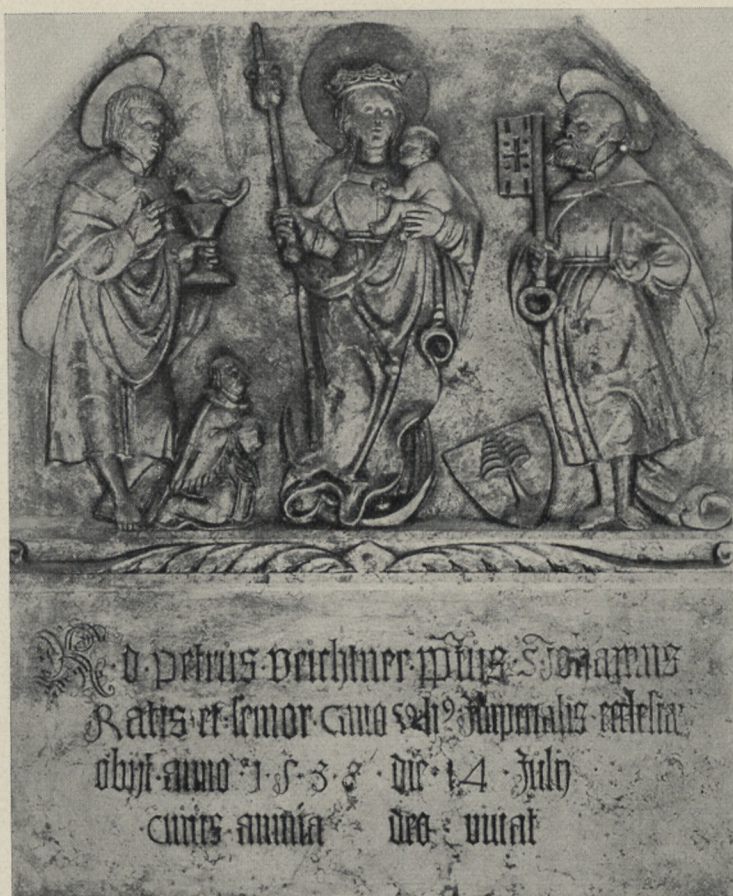 R · d · petrus · veichtner · pptus · S · Joh
Ratis · et · senior · Cano · hui9 Imperialis · ecclesia
obijt · anno · 1 · 5 · 3 · 8 · die · 14 · July
cuius · animia deo viuat